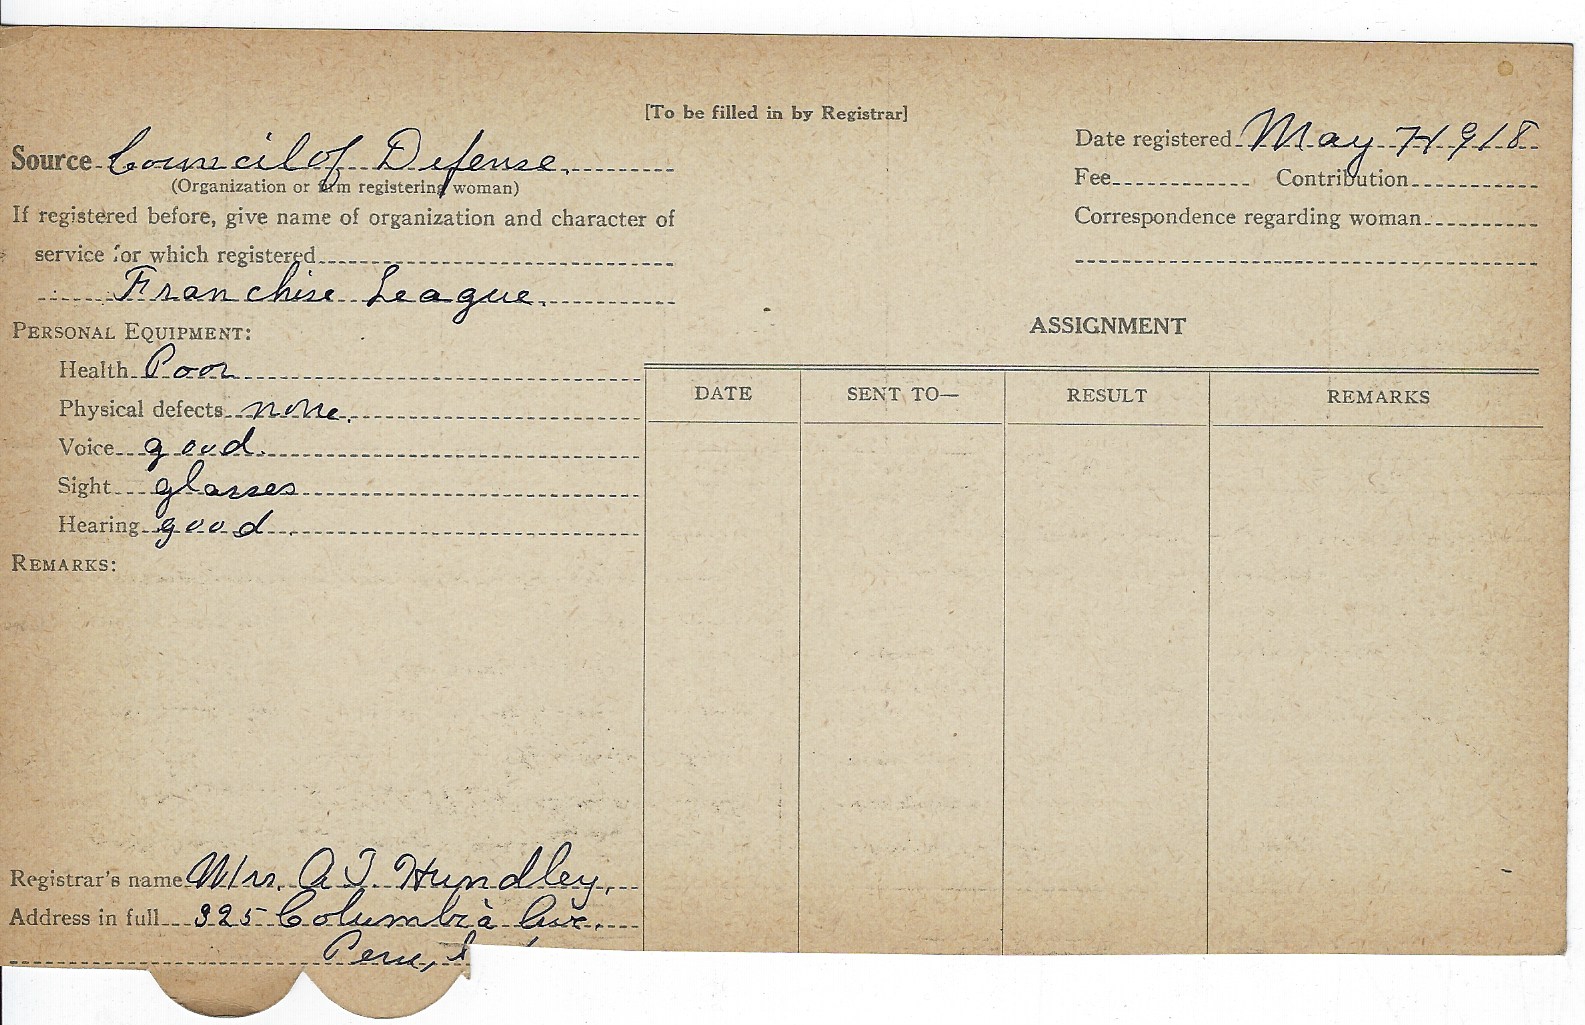 [To be filled in by Registrar]
Source Council of Defense.
(Organization or firm registering woman)
If registered before, give name of organization and character of
service for which registered
Franchise League.
PERSONAL EQUIPMENT:
Health Poor
Physical defects none.
Voice good.
Sight glasses
Hearing good
REMARKS:
Registrar's name Mrs. A T. Hundley,
Address in full 325 Columbia Ave.
Peru,
Date registered May 7-1918
Fee Contribution
Correspondence regarding woman
ASSIGNMENT
DATE SENT TO— RESULT REMARKS